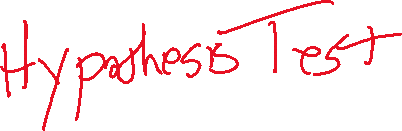 Hypothesis Test